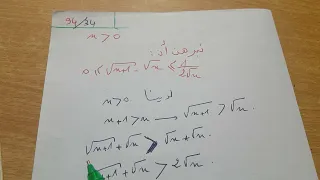 94/34
n > 0
نبرهن أن:
0 < √n+1 - √n < 1/2√n
لدينا n > 0
n+1 > n → √n+1 > √n.
√n+1 + √n > √n + √n.
√n+1 + √n > 2√n